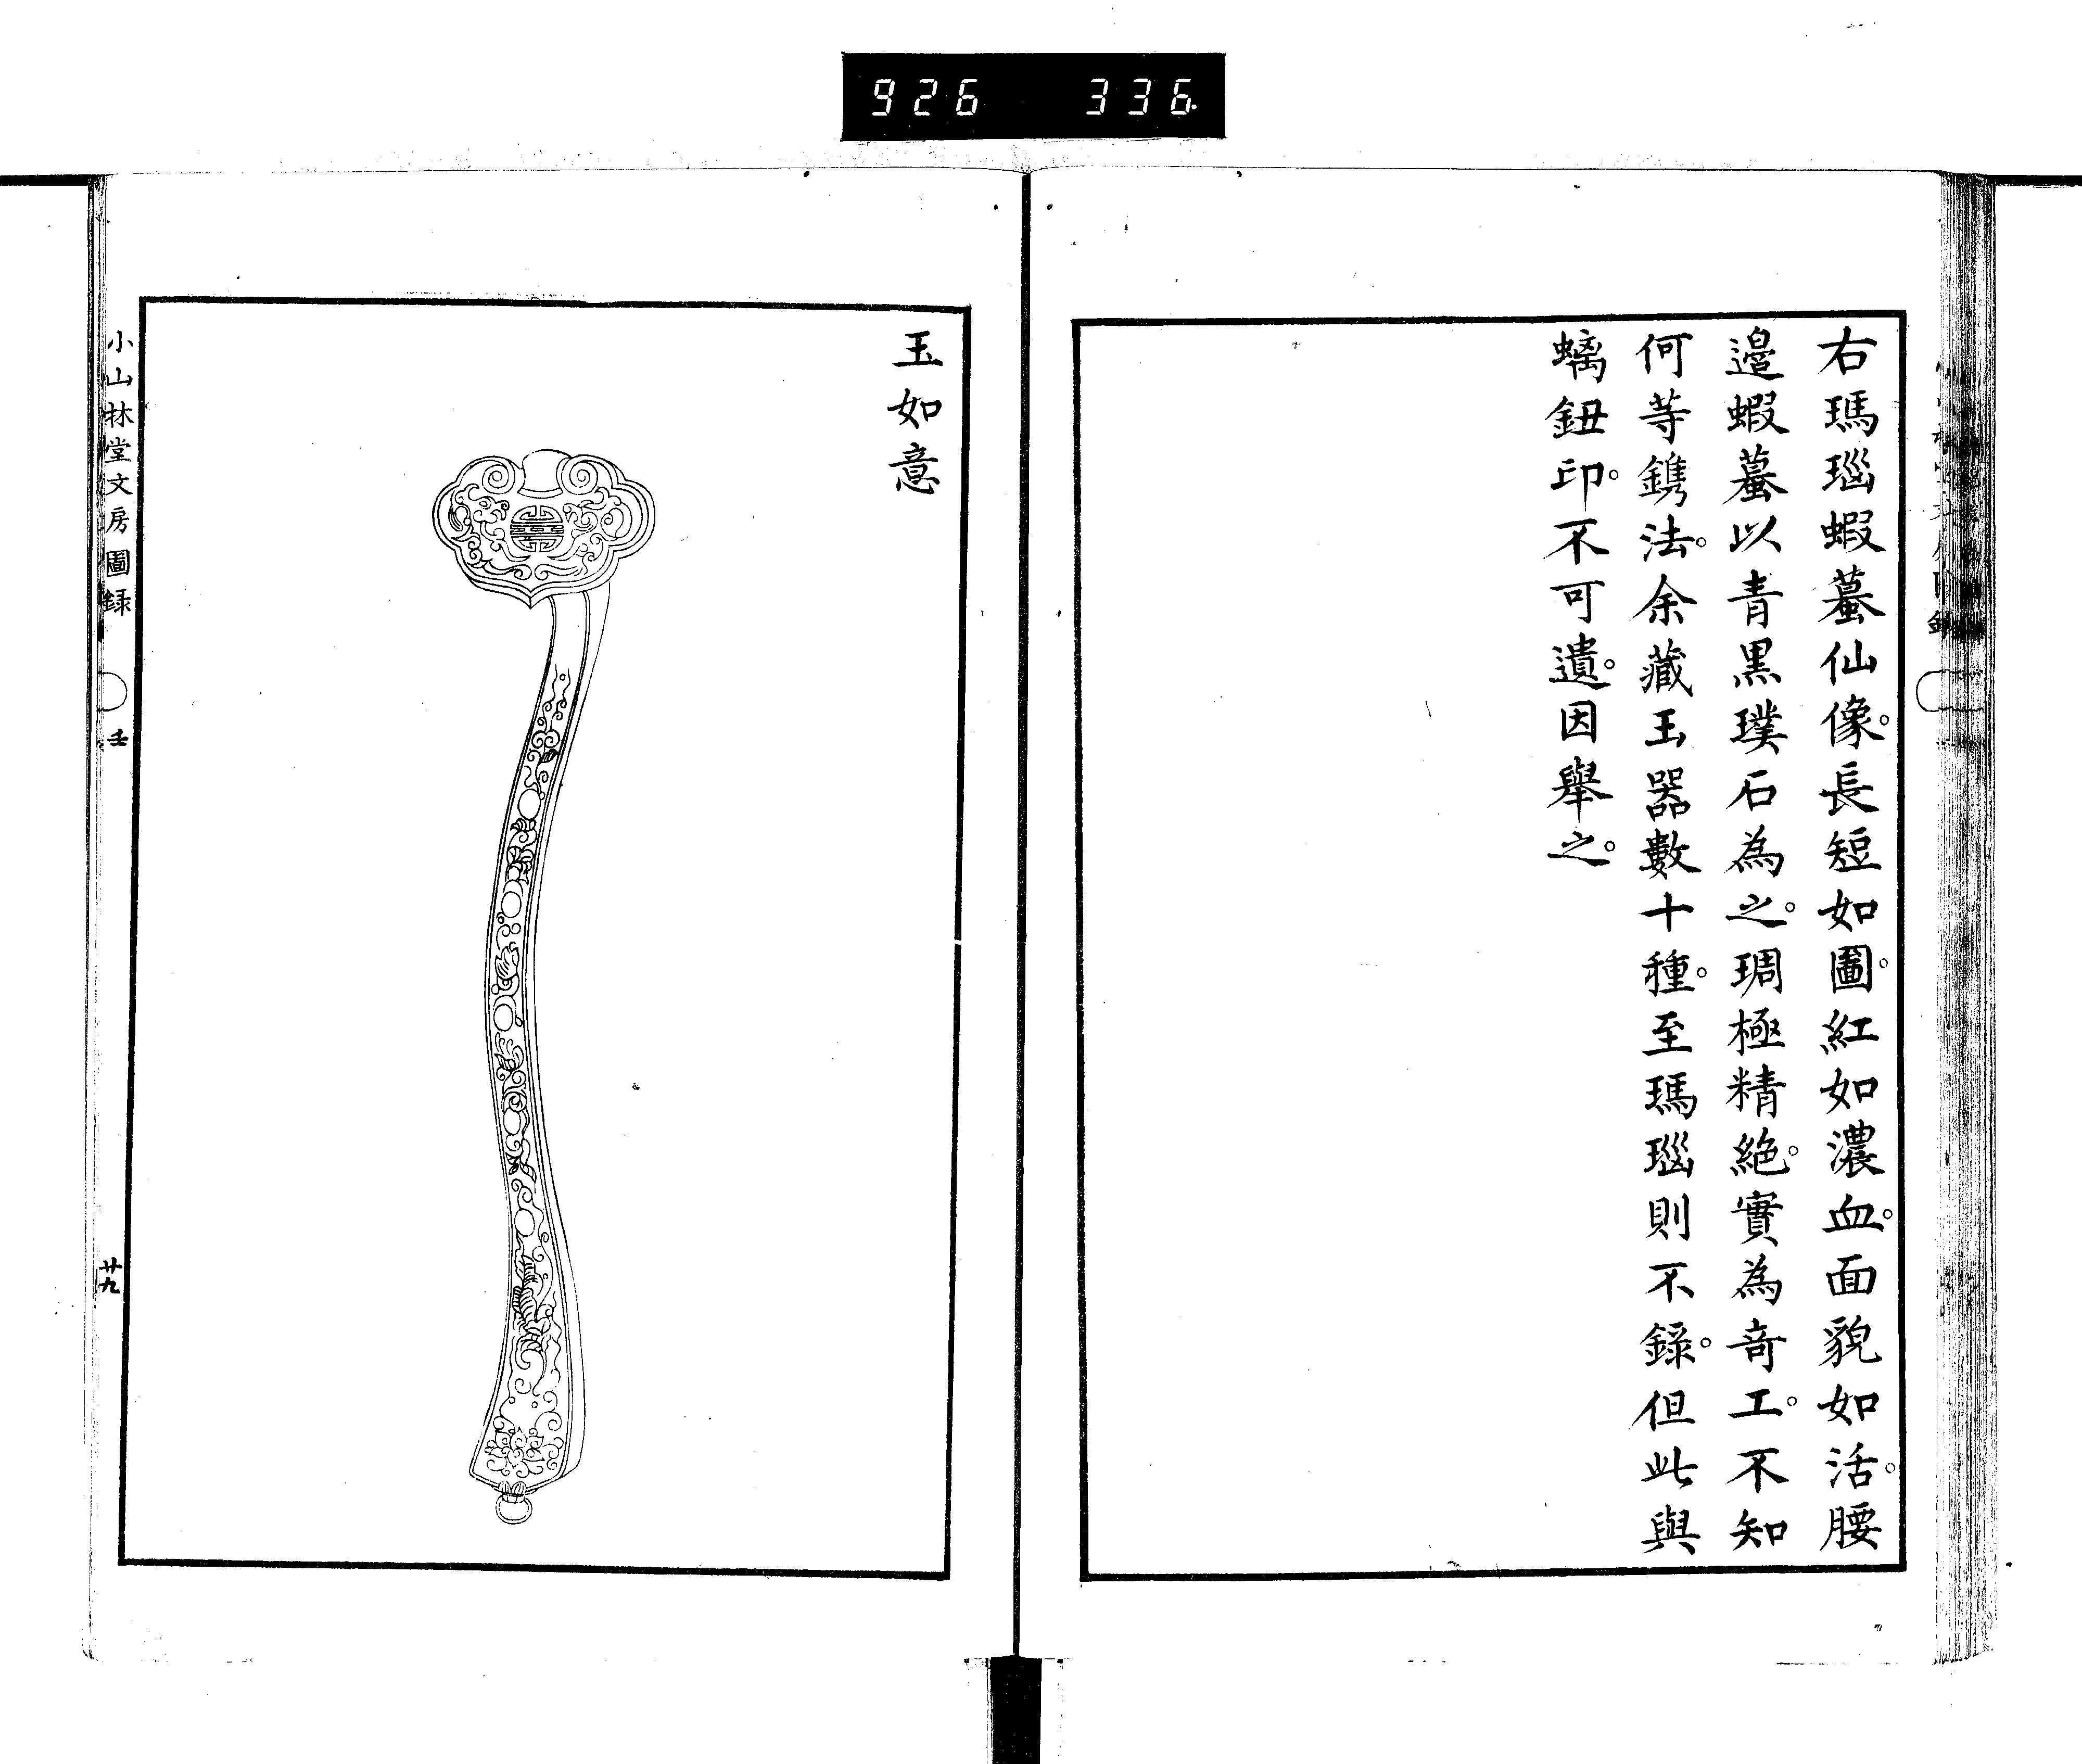 926 336.
右瑪瑙蝦蟇仙像。長短如圖。紅如濃血。面貌如活。腰
邉蝦蟇以青黒璞石為之。琱極精絶。實為奇工。不知
何等鐫法。余藏玉器數十種。至瑪瑙則不錄。但此與
螭鈕印。不可遺。因舉之。
玉如意
小山林堂文房圖録
壬
廿九